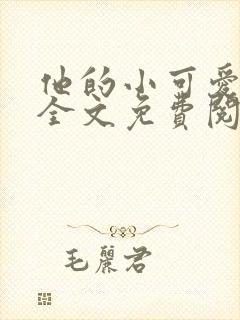 他的小可爱
全文免費閱
毛麗君